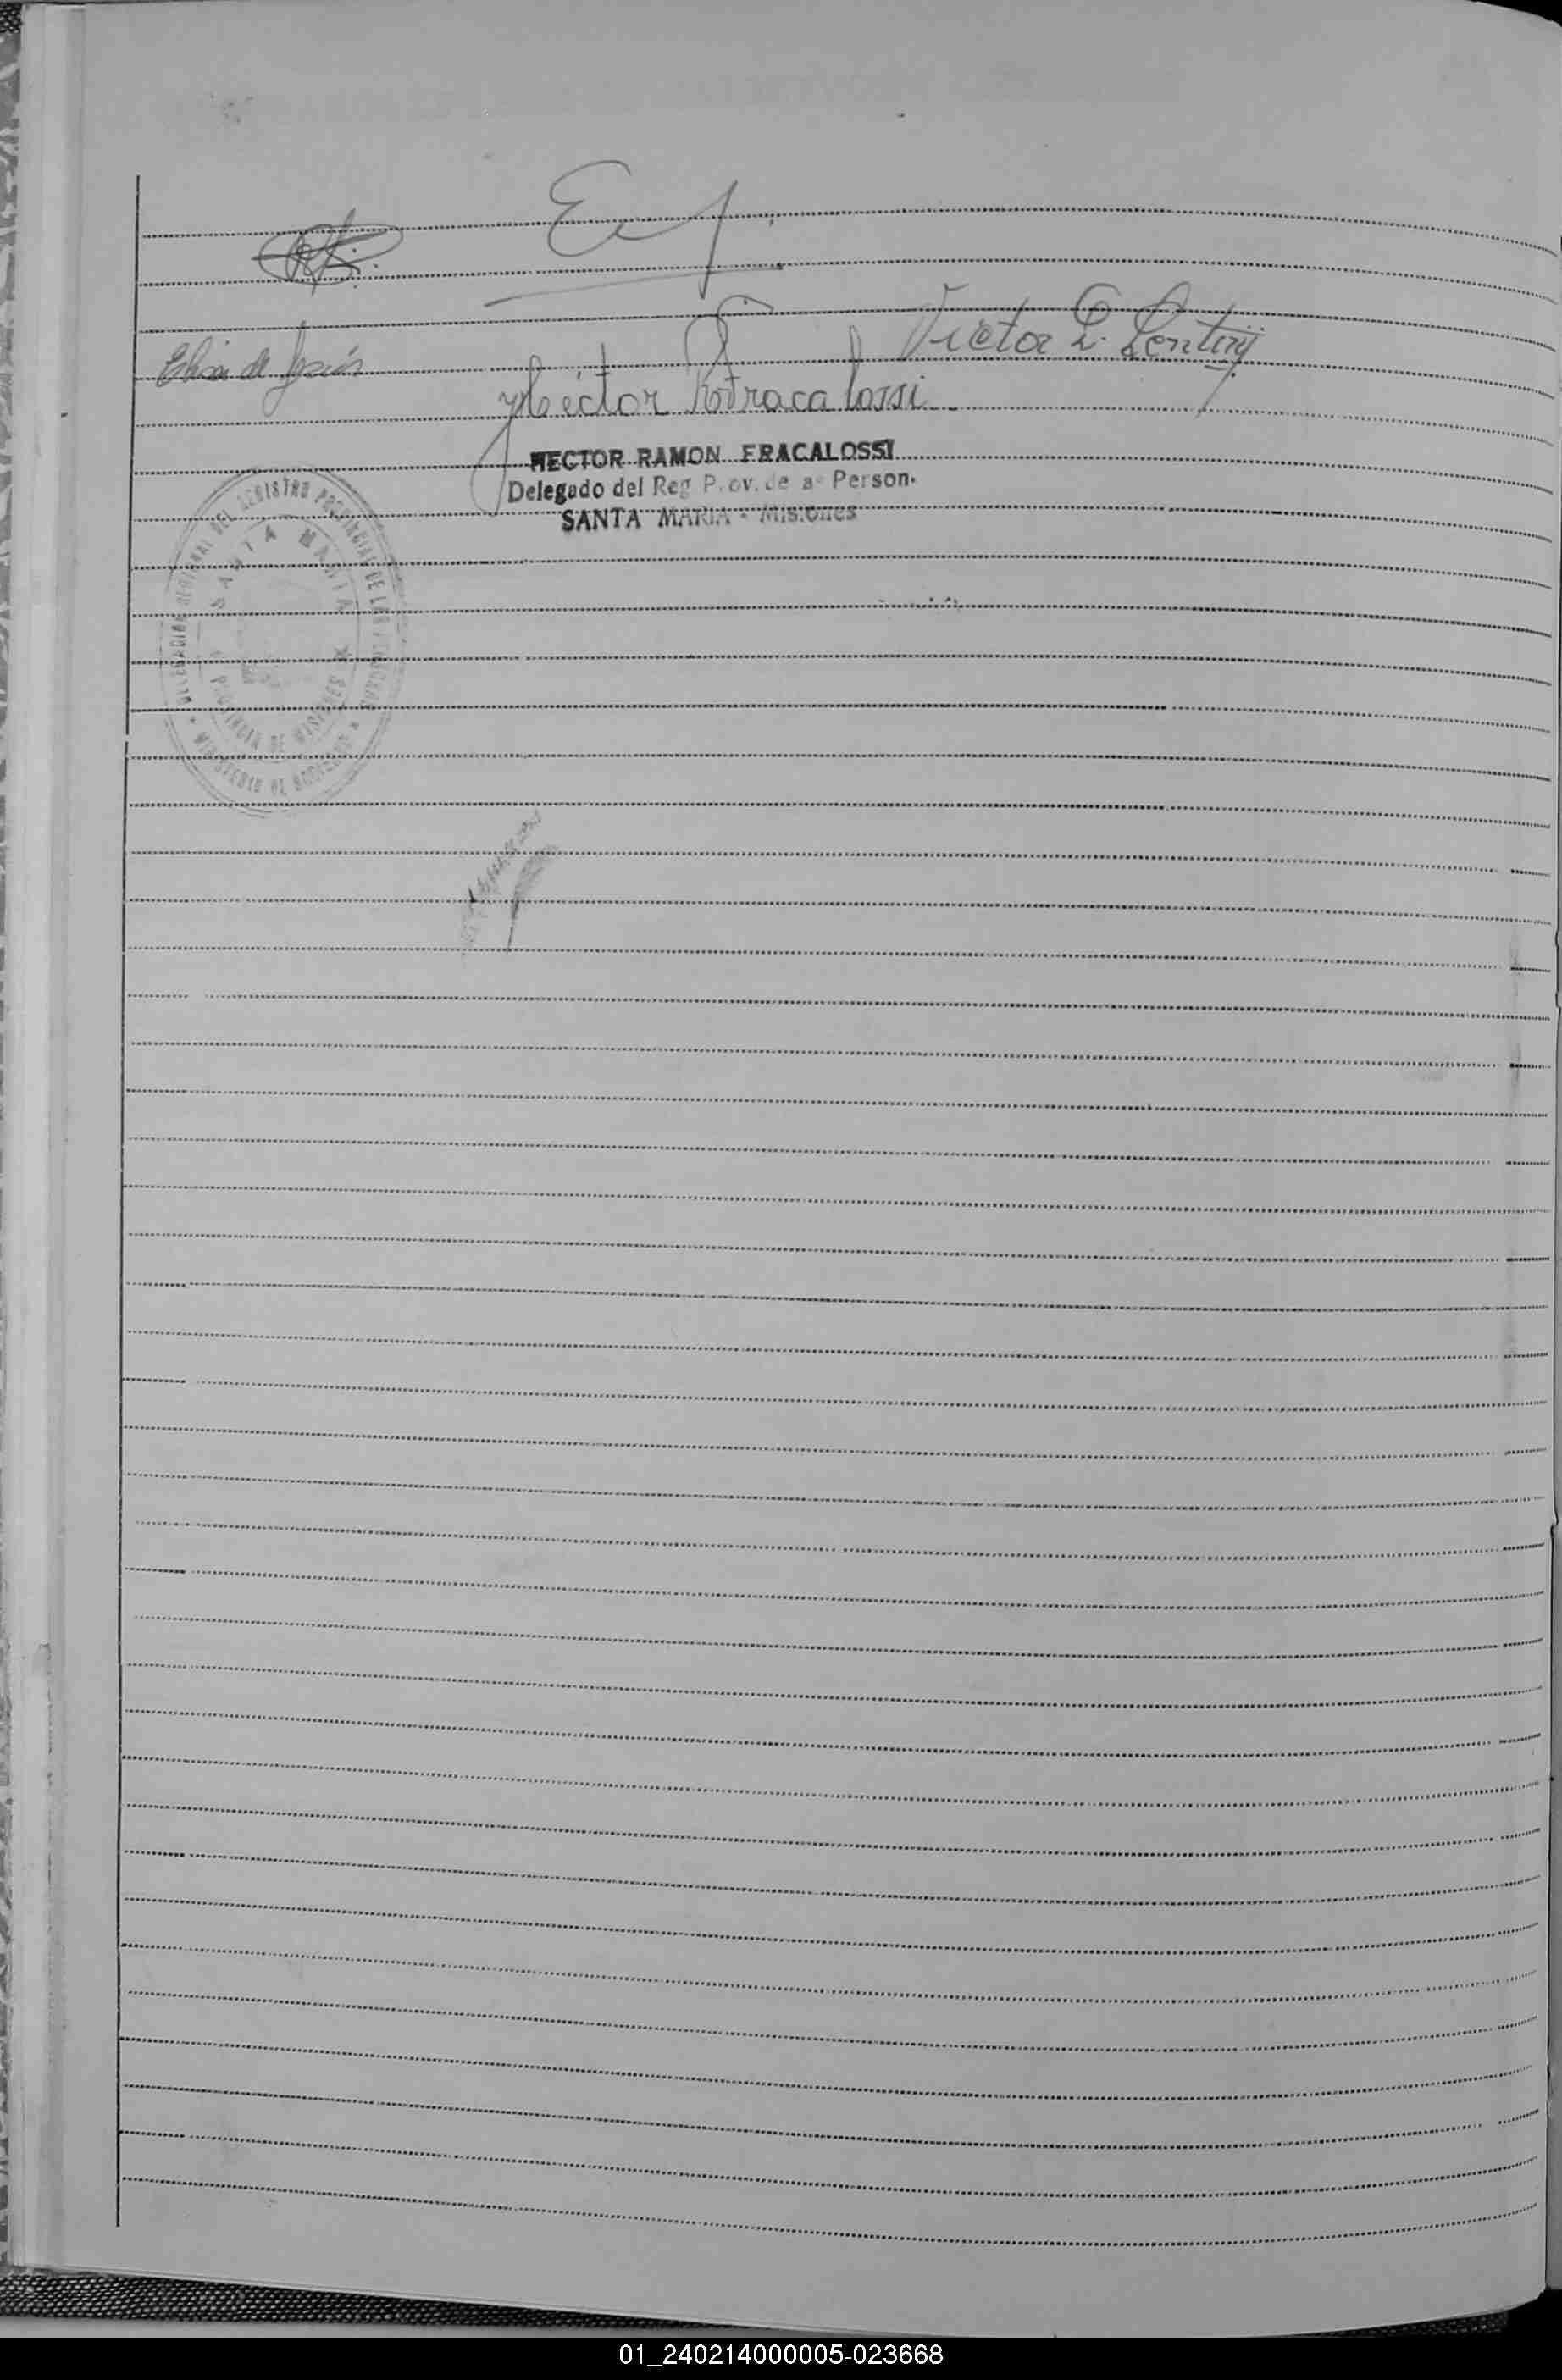 Elisa de Jesús
Victor E. Lentini
Héctor R Fracalossi
HECTOR RAMON FRACALOSSI
Delegado del Reg P.ov. de a Person.
SANTA MARIA - Misiones
DELEGACION REGIONAL DEL REGISTRO PROVINCIAL DE LAS PERSONAS
SANTA MARIA
PROVINCIA DE MISIONES
* MINISTERIO DE GOBIERNO *
01_240214000005-023668